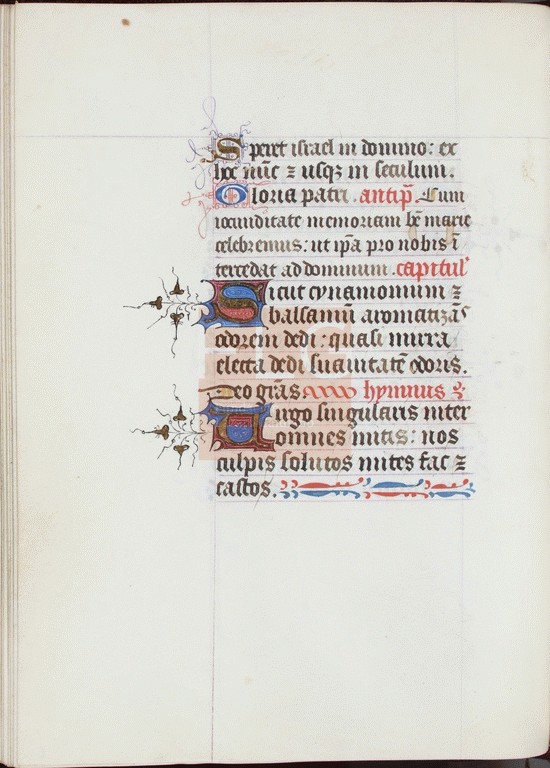 Speret israel in domino: ex
hoc nūc ⁊ usqȝ in seculum.
Gloria patri. antip̄. Cum
iocunditate memoriam bē marie
celebremus: ut ip̄a pro nobis ī
tercedat ad dominum. capitul'
Sicut cynamomum ⁊
balsamū aromatizās
odorem dedi: quasi mirra
electa dedi suauitatē odoris.
Deo grās hymnus
Uirgo singularis inter
omnes mitis: nos
culpis solutos mites fac ⁊
castos.